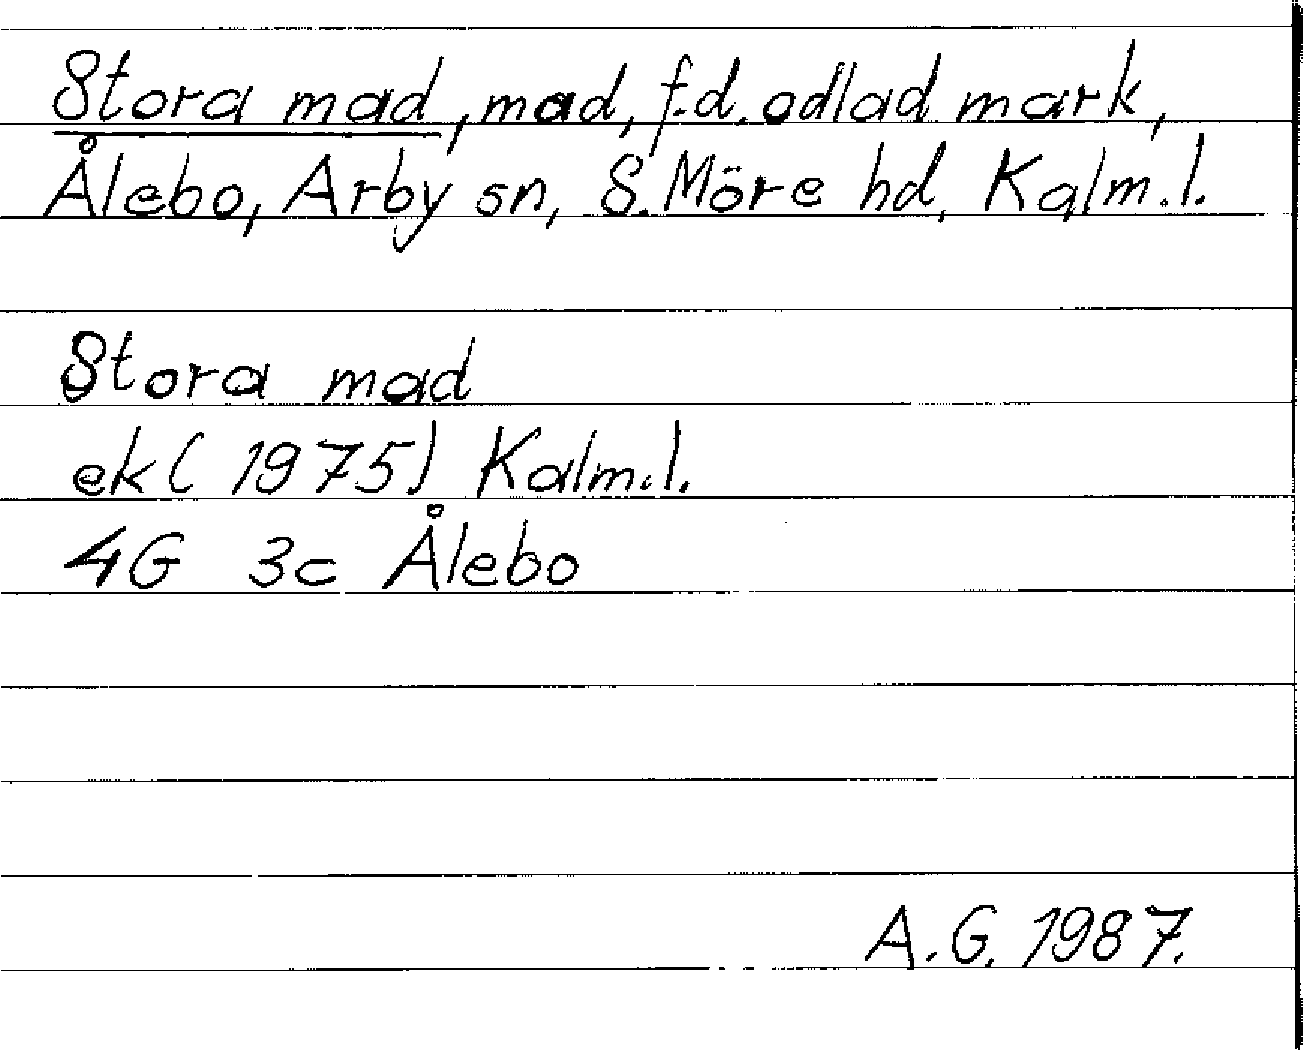 Stora mad, mad, f.d. odlad mark,
Ålebo, Arby sn, S. Möre hd, Kalm.l.
Stora mad
ek (1975) Kalm.l.
4G 3c Ålebo
A.G. 1987.